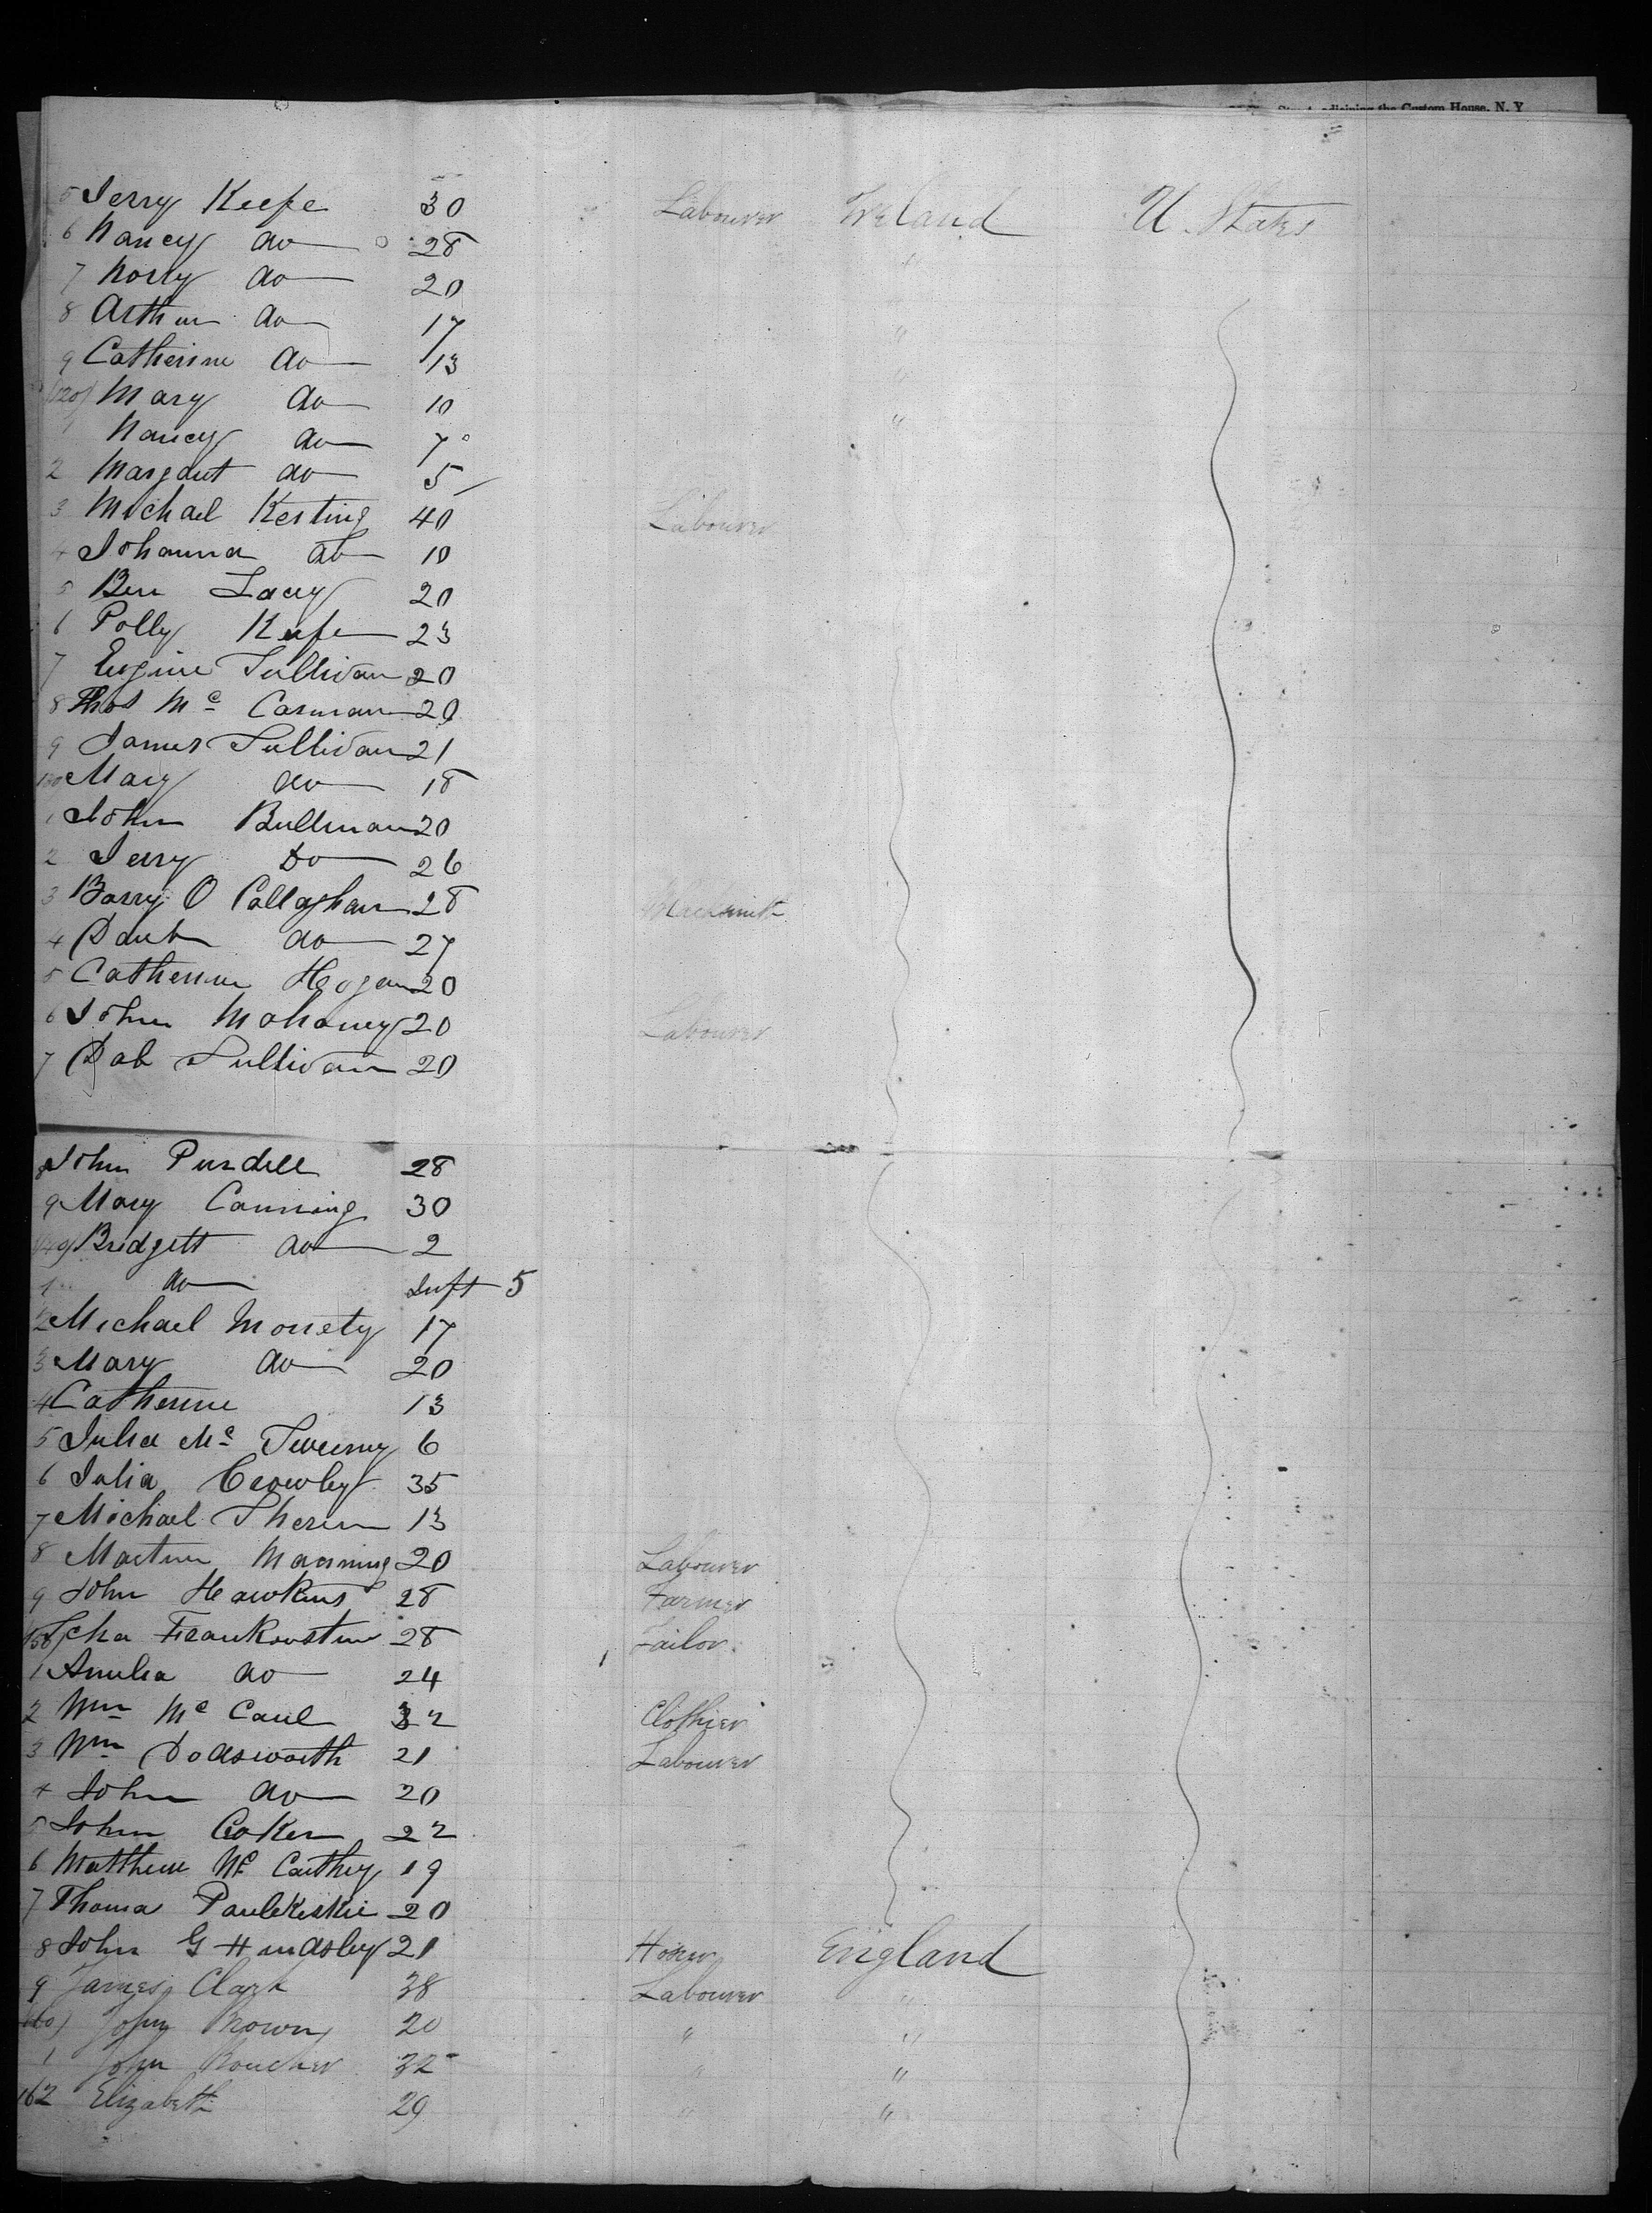 Custom House, N. Y
5 Jerry Keefe 30 Labourer Ireland U. States
6 Nancy do 28 "
7 Norry do 20
8 Arthur do 17 "
9 Catherine do 13
120 Mary do 10 "
1 Nancy do 7
2 Margaret do 5
3 Michael Kesting 40 Labourer
4 Johanna do 10
5 Ben Lacey 20
6 Polly Keefe 23
7 Eugine Sullivan 20
8 Thos Mc Carman 20
9 James Sullivan 21
130 Mary do 18
1 John Bullman 20
2 Jerry Do 26
3 Barry O Callaghan 28 Blacksmith
4 do 27
5 Catherine Hogan 20
6 John Mahoney 20 Labourer
7 Sullivan 20
8 John Purdell 28
9 Mary Canning 30
140 Bridgett do 2
1 do Inft 5
2 Michael Moriety 17
3 Mary do 20
4 Catherine 13
5 Julia Mc Sweeney 6
6 Julia Crowley 35
7 Michael 13
8 Martin Manning 20 Labourer
9 John Hawkins 28 Farmer
150 28 Tailor
1 Amelia do 24
2 Wm Mc Caul 32 Clothier
3 Wm Dodsworth 21 Labourer
4 John do 20
5 John Coker 22
6 Matthew Mc Carthey 19
7 Thomas 20
8 John G 21 England
9 James Clark 38 Labourer "
160 John Brown 20 " "
1 John 32 " "
162 Elizabeth 29 " "